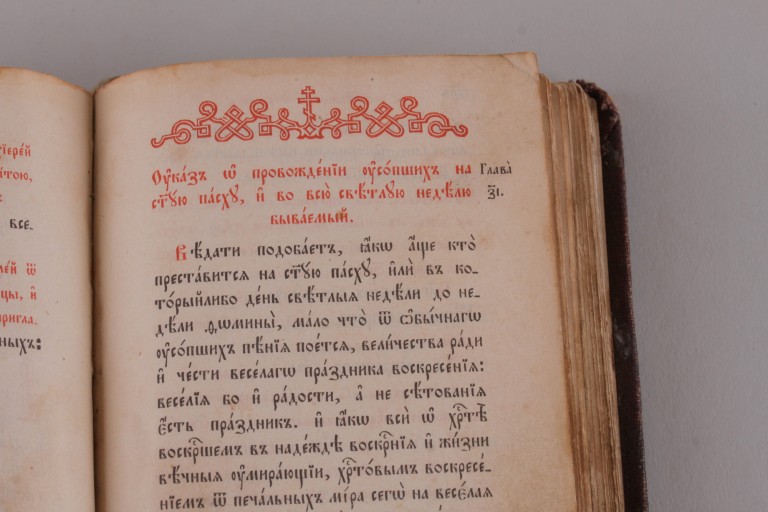 їере́й
а́тою,
все.
ре́й ѿ
цы, и҆
пригла.
ныхъ:
Оу҆ка́зъ ѡ҆ провожде́нїи оу҆со́пшихъ на
ст҃у́ю па́сху, и҆ во всю̀ свѣ́тлую недѣ́лю
быва́емый.
Глава̀
з҃і.
Вѣ́дати подоба́етъ, ꙗ҆́кѡ а҆́ще кто̀
преста́вится на ст҃у́ю па́сху, и҆лѝ въ ко-
то́рыйлибо де́нь свѣ́тлыѧ недѣ́ли до не-
дѣ́ли ѳѡмины̀, ма́ло что̀ ѿ ѡ҆бы́чнагѡ
оу҆со́пшихъ пѣ́нїѧ пое́тсѧ, вели́чества ра́ди
и҆ че́сти весе́лагѡ пра́здника воскресе́нїѧ:
весе́лїѧ бо и҆ ра́дости, а҆ не сѣ́тованїѧ
є҆́сть пра́здникъ. и҆ ꙗ҆́кѡ всѝ ѡ҆ хрⷭ҇тѣ̀
воскрⷭ҇шемъ въ наде́ждѣ воскрⷭ҇нїѧ и҆ жи́зни
вѣ́чныѧ оу҆мира́ющїи, хрⷭ҇то́вымъ воскресе́-
нїемъ ѿ печа́льныхъ мі́ра сегѡ̀ на весє́лаѧ